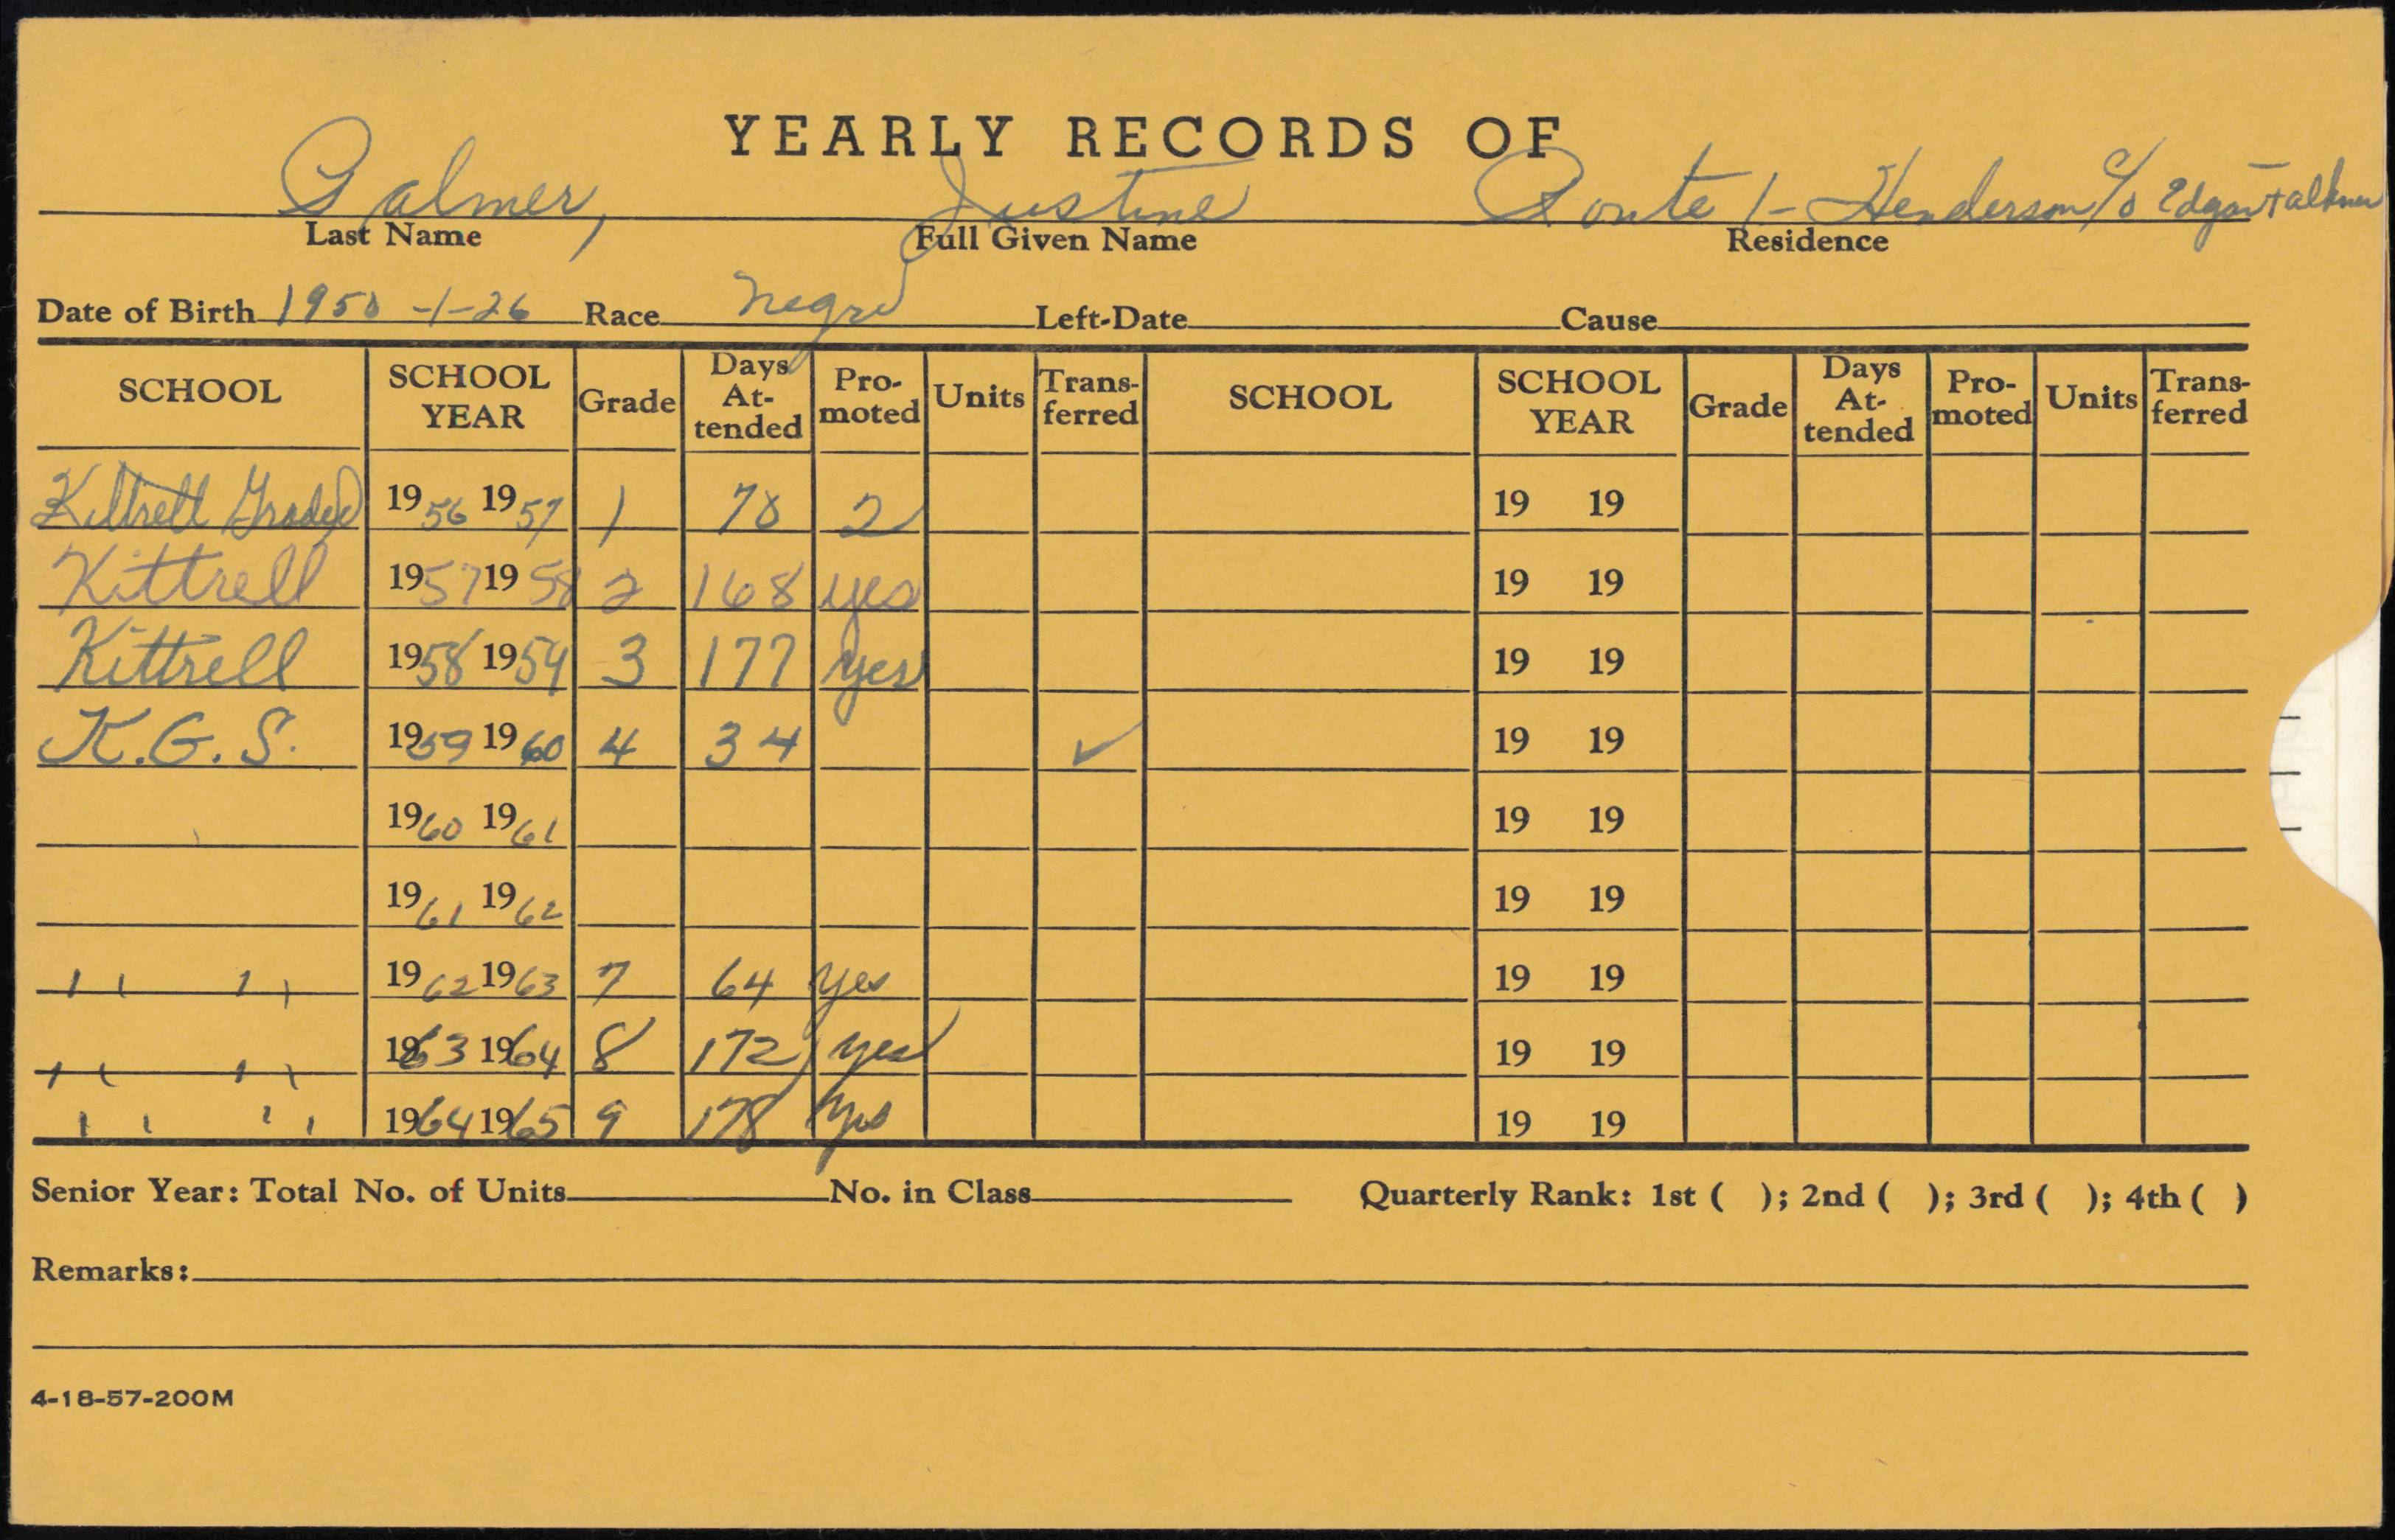 YEARLY RECORDS OF
Palmer, Justine Route 1 - Henderson c/o Edgar Falkner
Last Name Full Given Name Residence
Date of Birth 1950 -1-26 Race Negro Left-Date Cause
SCHOOL SCHOOL YEAR Grade Days At-tended Pro-moted Units Trans-ferred SCHOOL SCHOOL YEAR Grade Days At-tended Pro-moted Units Trans-ferred
Kittrell Graded 1956 1957 1 78 2 19 19
Kittrell 1957 1958 2 168 yes 19 19
Kittrell 1958 1959 3 177 yes 19 19
K.G.S. 1959 1960 4 34 ✓ 19 19
1960 1961 19 19
1961 1962 19 19
" " 1962 1963 7 64 yes 19 19
" " 1963 1964 8 172 yes 19 19
" " 1964 1965 9 178 yes 19 19
Senior Year: Total No. of Units No. in Class Quarterly Rank: 1st ( ); 2nd ( ); 3rd ( ); 4th ( )
Remarks:
4-18-57-200M